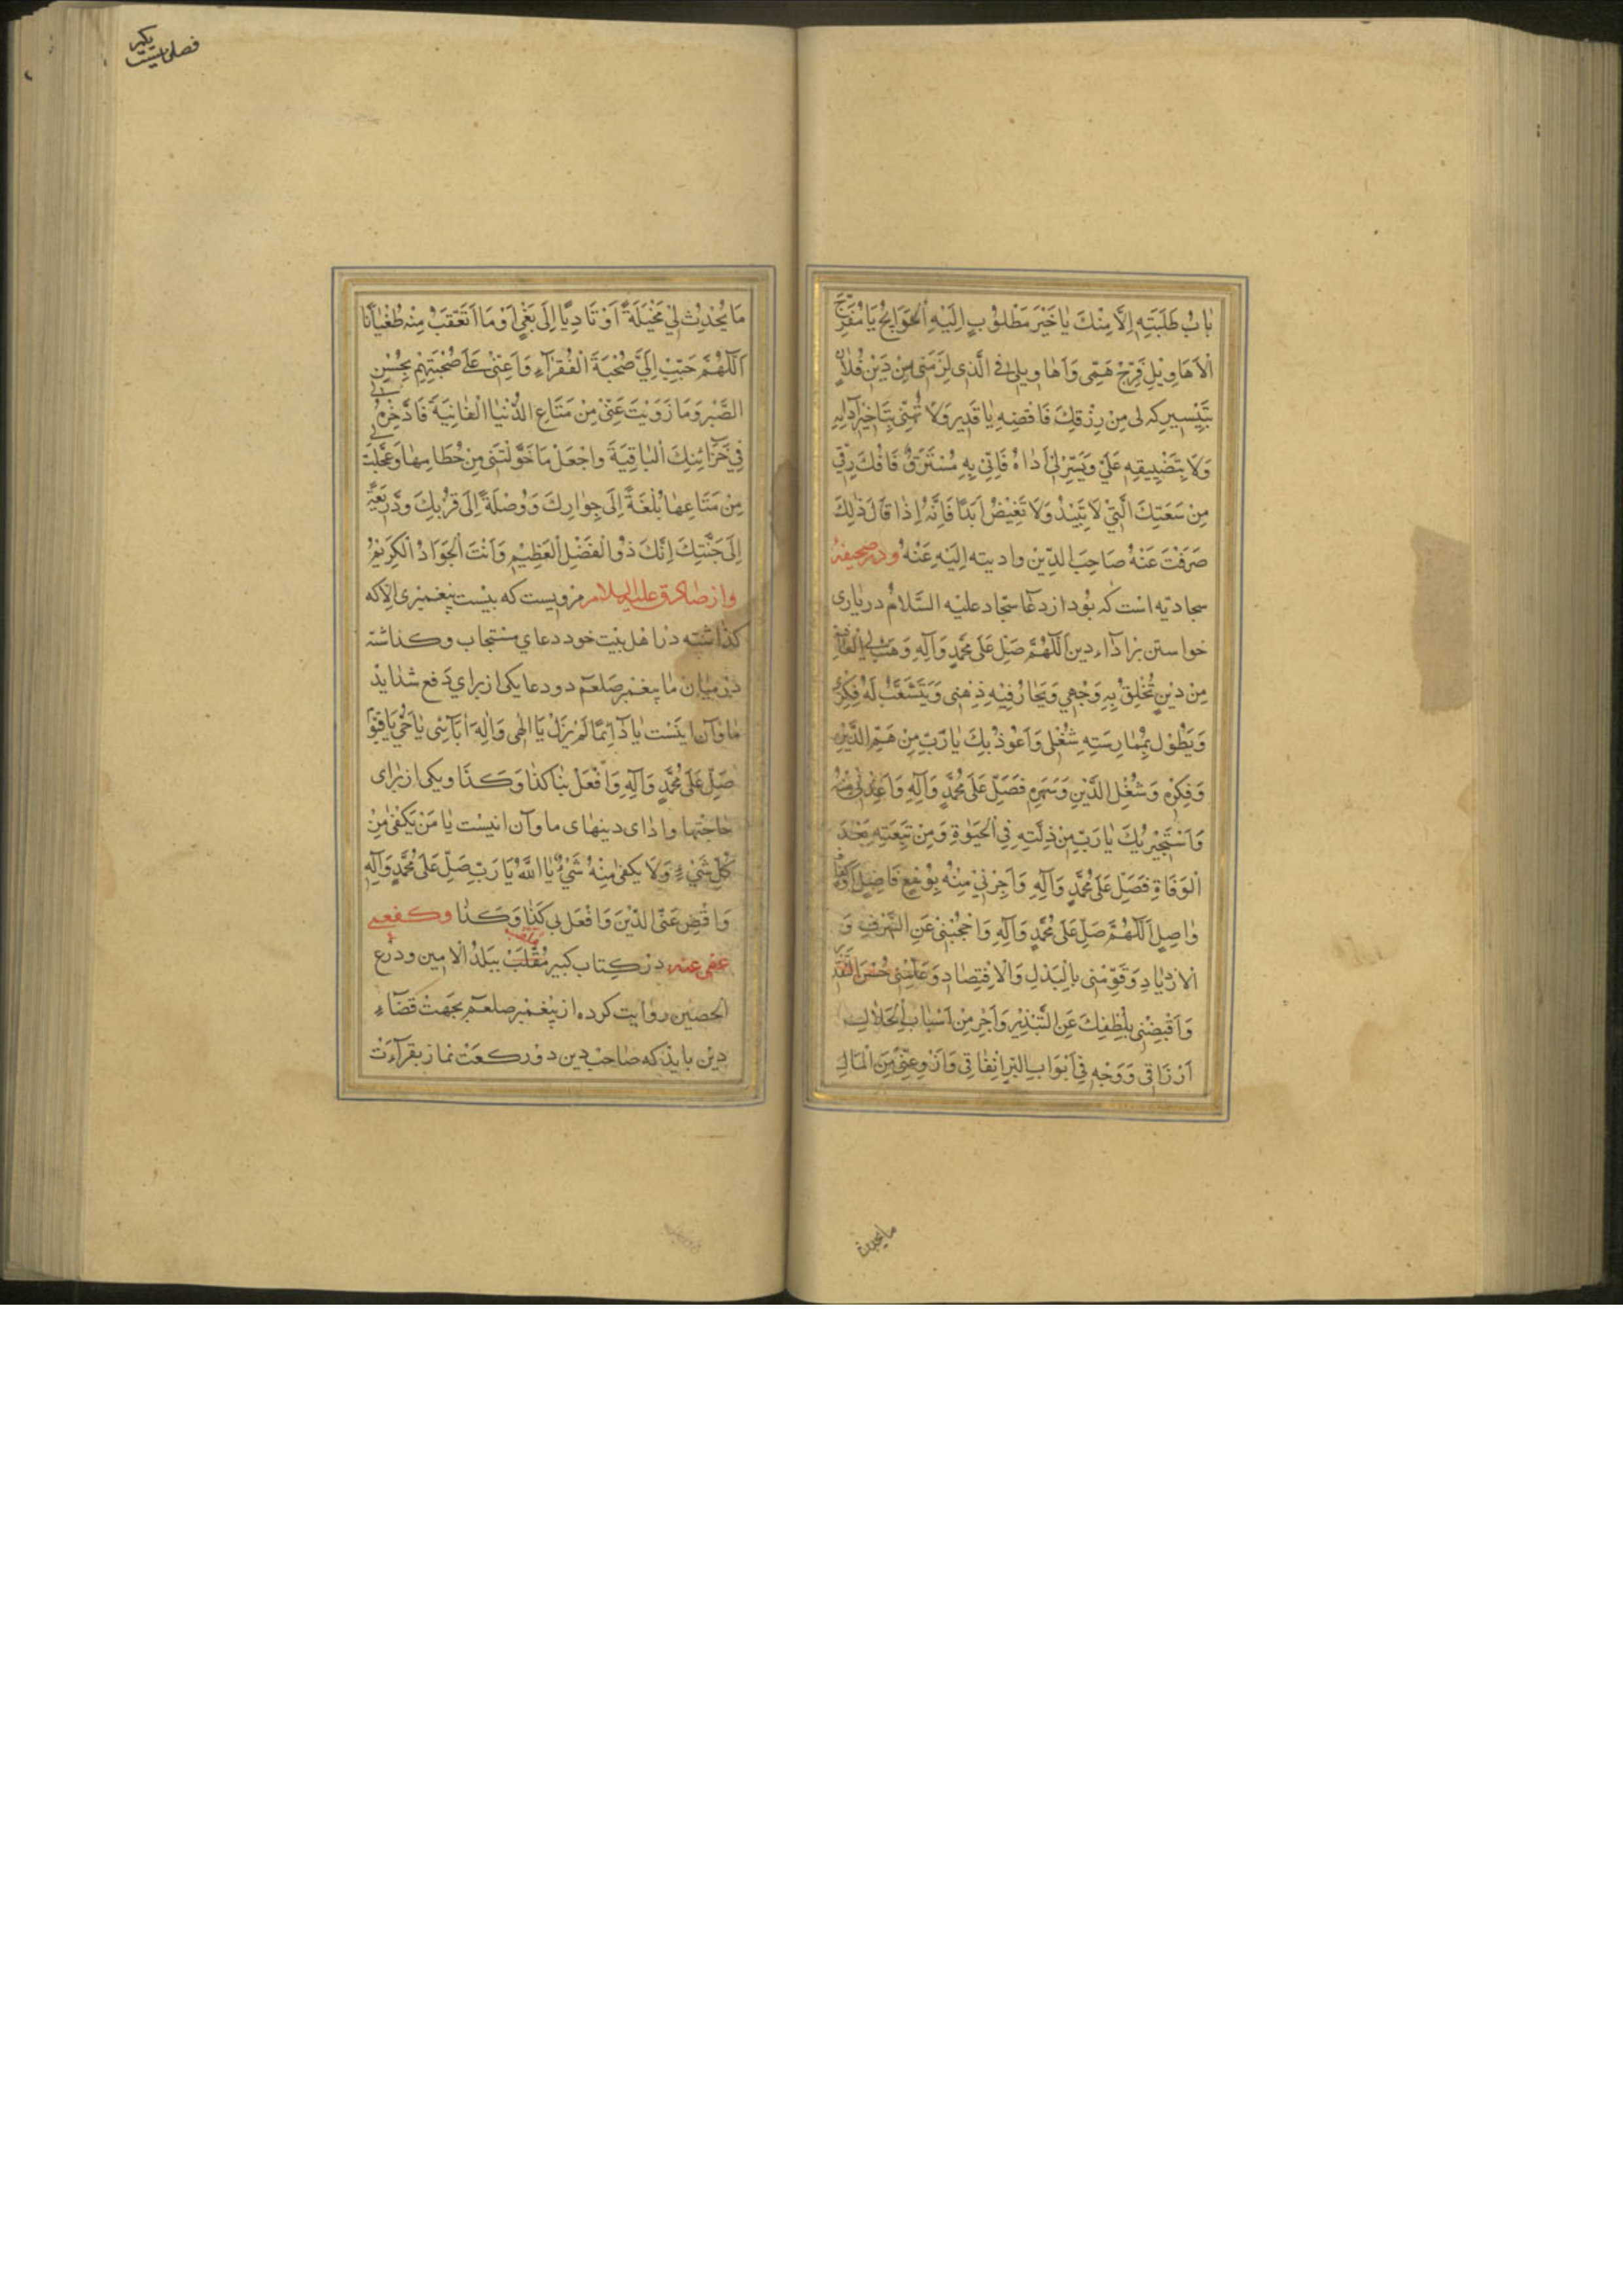 بَابُ طَلِبَتِهِ اِلَّا مِنْكَ يَا خَيْرَ مَطْلُوْبٍ اِلَيْهِ الْحَوَايِجُ يَا مُفَرِّجَ
الْاَهَاوِيْلِ فَرِّجْ هَمِّى وَاَهَاوِيلِى فِى الَّذِى لَزِمَنِى مِنْ دَيْنِ فُلَانٍ
بِتَيْسِيرِكَهُ لِى مِنْ رِزْقِكَ فَاقْضِهِ يَا قَدِيرُ وَلَا تُهِنِّى بِتَاخِيْرِ اَدَائِهِ
وَلَا بِتَضْيِيقِهِ عَلَىَّ وَيَسِّرْ لِىْ اَدَاءَهُ فَاِنِّى بِهِ مُسْتَرَقٌّ فَافْكُكْ رِقِّى
مِنْ سَعَتِكَ الَّتِىْ لَا تَبِيْدُ وَلَا تَغِيْضُ اَبَدًا فَاِنَّهُ اِذَا قَالَ ذٰلِكَ
صَرَفْتُ عَنْهُ صَاحِبَ الدَّيْنِ وادیته اِلَيْهِ عَنْهُ ودر صحیفهٔ
سجادیه است که بود از دعا سجاد علیه السَّلامُ در یاری
خواستن بر اداء دین اَللّٰهُمَّ صَلِّ عَلَى مُحَمَّدٍ وَآلِهِ وَهَبْ لِىَ الْعَافِيَةَ
مِنْ دَيْنٍ تُخْلِقُ بِهِ وَجْهِى وَيَحَارُ فِيْهِ ذِهْنِى وَيَتَشَعَّبُ لَهُ فِكْرِى
وَيَطُوْلُ بِمُمَارَسَتِهِ شُغْلِى وَاَعُوْذُ بِكَ يَا رَبِّ مِنْ هَمِّ الدَّيْنِ
وَفِكْرِهِ وَشُغْلِ الدَّيْنِ وَسَهَرِهِ فَصَلِّ عَلَى مُحَمَّدٍ وَآلِهِ وَاَعِذْنِىْ مِنْهُ
وَاَسْتَجِيْرُ بِكَ يَا رَبِّ مِنْ ذِلَّتِهِ فِى الْحَيٰوةِ وَمِنْ تَبِعَتِهِ بَعْدَ
الْوَفَاةِ فَصَلِّ عَلَى مُحَمَّدٍ وَآلِهِ وَاَجِرْنِىْ مِنْهُ بِوُسْعٍ فَاضِلٍ اَوْ كَفَافٍ
وَاصِلٍ اَللّٰهُمَّ صَلِّ عَلَى مُحَمَّدٍ وَآلِهِ وَاحْجُبْنِى عَنِ السَّرَفِ وَ
الْازْدِيَادِ وَقَوِّمْنِى بِالْبَذْلِ وَالْاِقْتِصَادِ وَعَلِّمْنِى حُسْنَ التَّقْدِيرِ
وَاَقْبِضْنِى بِلُطْفِكَ عَنِ التَّبْذِيْرِ وَاَجْرِ مِنْ اَسْبَابِ الْحَلَالِ
اَرْزَاقِى وَوَجِّهْ فِى اَبْوَابِ الْبِرِّ اِنْفَاقِى وَازْوِ عَنِّى مِنَ الْمَالِ
مایحدث
فصلی بیست یکیر
مَا يُحْدِثُ لِىْ مَخِيْلَةً اَوْ تَادِّيًا اِلَى بَغْىٍ اَوْ مَا اَتَعَقَّبُ مِنْهُ طُغْيَانًا
اَللّٰهُمَّ حَبِّبْ اِلَىَّ صُحْبَةَ الْفُقَرَاءِ وَاَعِنِّىْ عَلَى صُحْبَتِهِمْ بِحُسْنِ
الصَّبْرِ وَمَا زَوَيْتَ عَنِّىْ مِنْ مَتَاعِ الدُّنْيَا الْفَانِيَةِ فَادَّخِرْهُ لِى
فِى خَزَائِنِكَ الْبَاقِيَةِ وَاجْعَلْ مَا خَوَّلْتَنِى مِنْ حُطَامِهَا وَعَجَّلْتَ لِى
مِنْ مَتَاعِهَا بُلْغَةً اِلَى جِوَارِكَ وَوُصْلَةً اِلَى قُرْبِكَ وَذَرِيْعَةً
اِلَى جَنَّتِكَ اِنَّكَ ذُو الْفَضْلِ الْعَظِيْمِ وَاَنْتَ الْجَوَادُ الْكَرِيْمُ
واز صادق علیه السلام مرویست که نیست پیغمبری الا که
گذاشته در اهل بیت خود دعای مستجاب وگذاشته
در میان ما پیغمبر صلعم دو دعا یکی از برای دفع شداید
ما وآن اینست يَا دَائِمًا لَمْ يَزَلْ يَا اِلٰهِى وَاِلٰهَ اٰبَآئِى يَا حَىُّ يَا قَيُّوْمُ
صَلِّ عَلَى مُحَمَّدٍ وَآلِهِ وَافْعَلْ بِنَا كَذَا وَكَذَا ویکی از برای
حاجتها وادای دینهای ما وآن اینست يَا مَنْ يَكْفِى مِنْ
كُلِّ شَىْءٍ وَلَا يَكْفِى مِنْهُ شَىْءٌ يَا اَللّٰهُ يَا رَبِّ صَلِّ عَلَى مُحَمَّدٍ وَآلِهِ
وَاقْضِ عَنِّى الدَّيْنَ وَافْعَلْ بِى كَذَا وَكَذَا وكفعمى
عفی عنه در کتاب کبیر مُقلّب ملقب ببلد الامین ودرع
الحصین روایت کرده از پیغمبر صلعم بجهت قضاء
دین باید که صاحب دین دو رکعت نماز بقرآءت